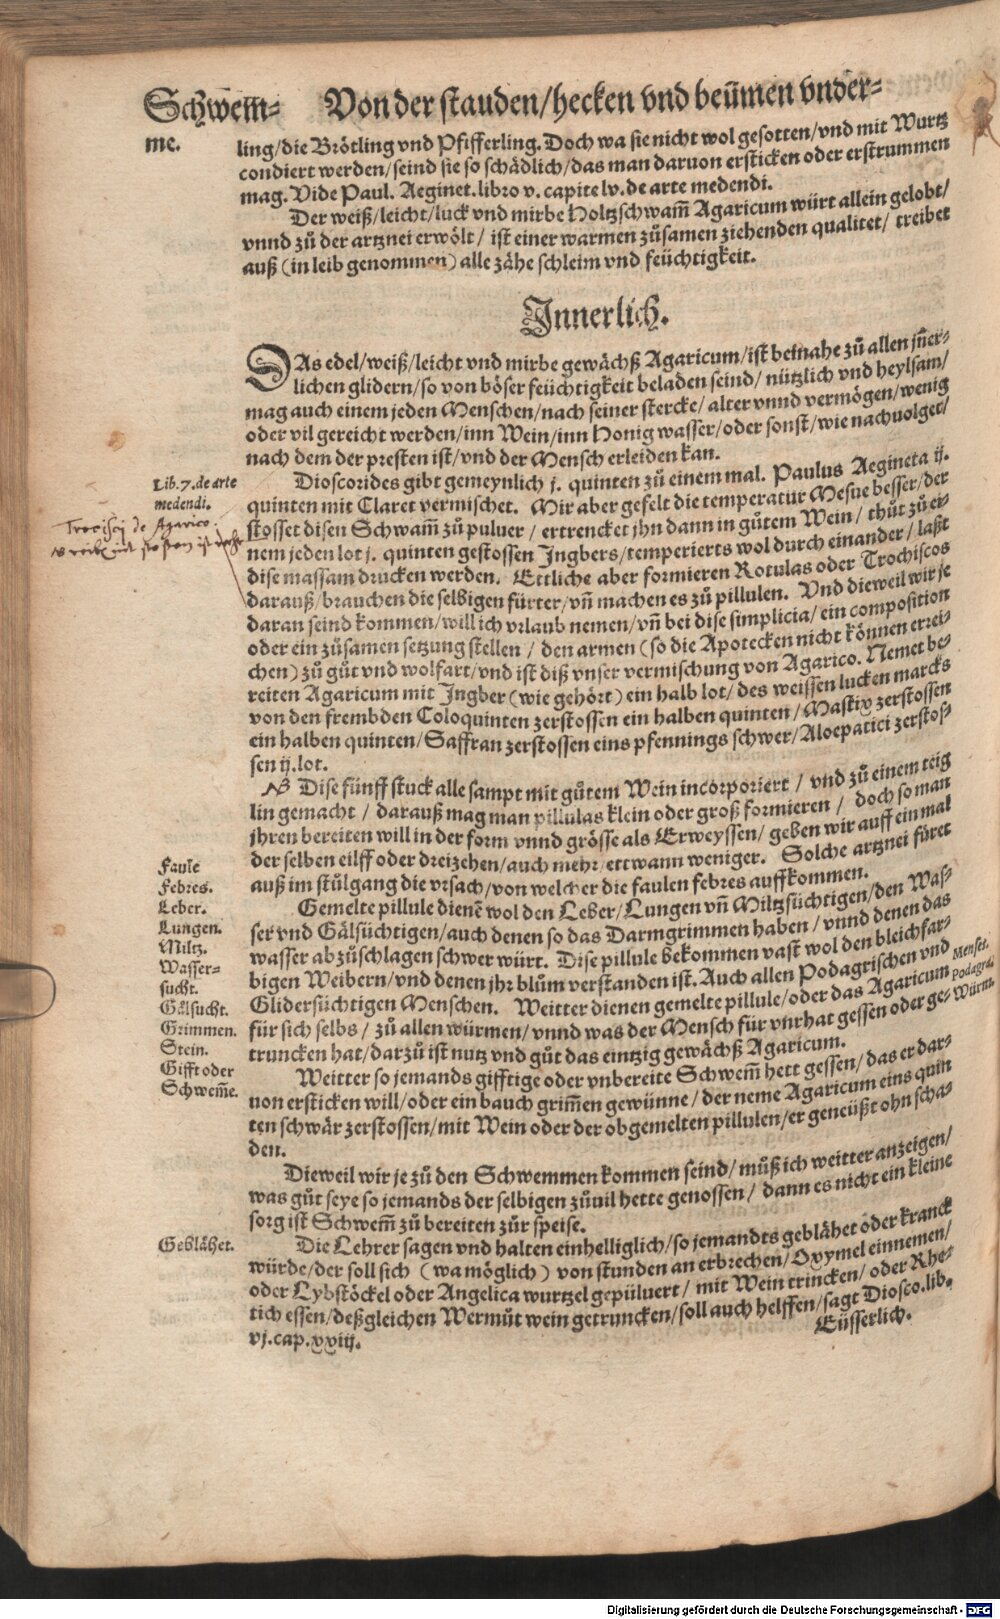 Schwem̃- Von der stauden/hecken vnd beümen vnder-
me.
ling/die Brötling vnd Pfifferling. Doch wa sie nicht wol gesotten/vnd mit Wurtz
condiert werden/seind sie so schädlich/das man daruon ersticken oder erstrummen
mag. Vide Paul. Aeginet. libro v. capite lv. de arte medendi.
Der weiß/leicht/luck vnd mirbe Holtzschwam̃ Agaricum würt allein gelobt/
vnnd zů der artznei erwölt/ ist einer warmen zůsamen ziehenden qualitet/ treibet
auß (in leib genommen) alle zähe schleim vnd feüchtigkeit.
Innerlich.
DAs edel/weiß/leicht vnd mirbe gewächß Agaricum/ist beinahe zů allen jñer-
lichen glidern/so von böser feüchtigkeit beladen seind/ nützlich vnd heylsam/
mag auch einem jeden Menschen/nach seiner stercke/ alter vnnd vermögen/wenig
oder vil gereicht werden/inn Wein/inn Honig wasser/oder sonst/wie nachuolget/
nach dem der presten ist/vnd der Mensch erleiden kan.
Lib. 7. de arte
medendi.
Trocisci de Agarico
Dioscorides gibt gemeynlich j. quinten zů einem mal. Paulus Aegineta ij.
quinten mit Claret vermischet. Mir aber gefelt die temperatur Mesue besser/der
stosset disen Schwam̃ zů puluer/ ertrencket jhn dann in gůtem Wein/ thůt zů ei-
nem jeden lot j. quinten gestossen Ingbers/temperierts wol durch einander/ laßt
dise massam drucken werden. Ettliche aber formieren Rotulas oder Trochiscos
darauß/brauchen die selbigen fürter/vñ machen es zů pillulen. Vnd dieweil wir je
daran seind kommen/will ich vrlaub nemen/vñ bei dise simplicia/ein composition
oder ein zůsamen setzung stellen/ den armen (so die Apotecken nicht können errei-
chen) zů gůt vnd wolfart/vnd ist diß vnser vermischung von Agarico. Nemet be-
reiten Agaricum mit Ingber (wie gehört) ein halb lot/ des weissen lucken marcks
von den frembden Coloquinten zerstossen ein halben quinten/Mastix zerstossen
ein halben quinten/Saffran zerstossen eins pfennings schwer/Aloepatici zerstos-
sen ij. lot.
NB Dise fünff stuck alle sampt mit gůtem Wein incorporiert/ vnd zů einem teig
lin gemacht/ darauß mag man pillulas klein oder groß formieren/ doch so man
jhren bereiten will in der form vnnd grösse als Erweyssen/ geben wir auff ein mal
der selben eilff oder dreizehen/auch mehr/ettwann weniger. Solche artznei füret
auß im stůlgang die vrsach/von welcher die faulen febres auffkommen.
Faule
Febres.
Leber.
Lungen.
Miltz.
Wasser-
sucht.
Gälsucht.
Grimmen.
Stein.
Gifft oder
Schwem̃e.
Gemelte pillule dienẽ wol den Leber/Lungen vñ Miltzsüchtigen/den Was-
ser vnd Gälsüchtigen/auch denen so das Darmgrimmen haben/vnnd denen das
wasser abzůschlagen schwer würt. Dise pillule bekommen vast wol den bleichfar-
bigen Weibern/vnd denen jhr blům verstanden ist. Auch allen Podagrischen vnd
Glidersüchtigen Menschen. Weitter dienen gemelte pillule/oder das Agaricum
für sich selbs/ zů allen würmen/vnnd was der Mensch für vnrhat gessen oder ge-
truncken hat/darzů ist nutz vnd gůt das eintzig gewächß Agaricum.
Menses.
Podagra
Würm.
Weitter so jemands gifftige oder vnbereite Schwem̃ hett gessen/das er dar-
uon ersticken will/oder ein bauch grim̃en gewünne/der neme Agaricum eins quin
ten schwär zerstossen/mit Wein oder der obgemelten pillulen/er geneüßt ohn scha-
den.
Dieweil wir je zů den Schwemmen kommen seind/můß ich weitter anzeigen/
was gůt seye so jemands der selbigen zůuil hette genossen/ dann es nicht ein kleine
sorg ist Schwem̃ zů bereiten zůr speise.
Geblähet.
Die Lehrer sagen vnd halten einhelliglich/so jemandts geblähet oder kranck
würde/der soll sich (wa möglich) von stunden an erbrechen/Oxymel einnemen/
oder Lybstöckel oder Angelica wurtzel gepüluert/ mit Wein trincken/ oder Rhe-
tich essen/deßgleichen Wermůt wein getruncken/soll auch helffen/sagt Diosco. lib.
vj. cap. xxiij.
Eüsserlich.
Digitalisierung gefördert durch die Deutsche Forschungsgemeinschaft - DFG